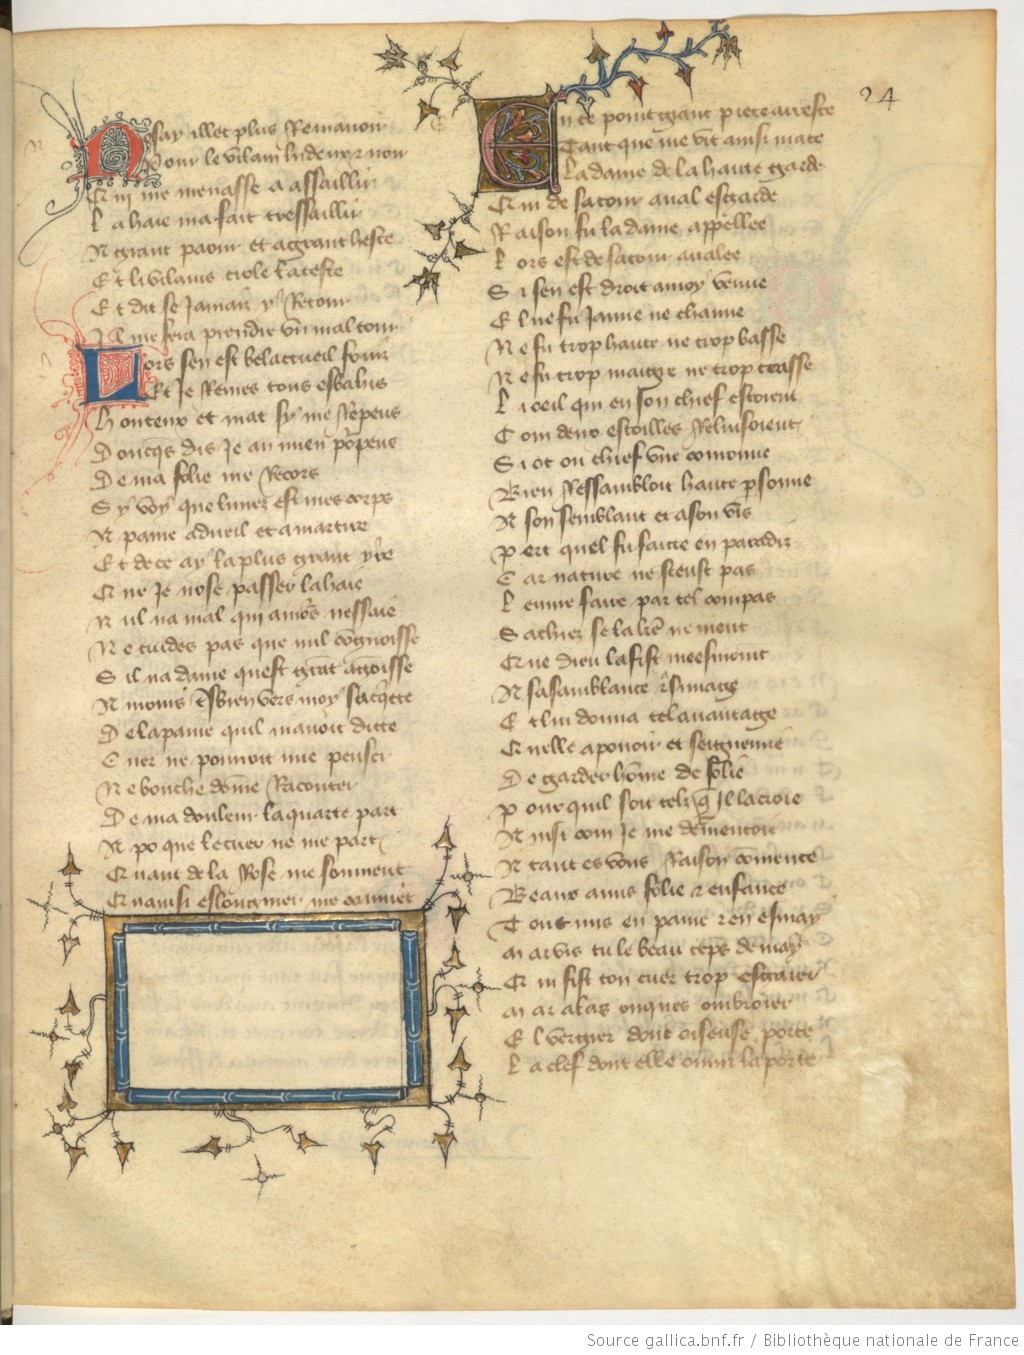 24
Nosay illec plus Remanoir
Pour le vilain hideux z noir
Qui me menasse a assaillir
La haie ma fait tressaillir
A grant paour et a grant heste
Et li vilains crole la teste
Et dit se Jamaiz y Retour
Il me fera prendre un mal tour
Lors sen est belacueil fouiz
Et Je Remes tous esbahis
Honteux et mat sy me Repens
Doncqs dis Je au mien ppens
De ma folie me Recors
Sy voy que livrez est mes corps
A paine a dueil et a martire
Et de ce ay la plus grant yre
Que Je nose passer la haie
Nul na mal qui amors nessaie
Ne cuides pas que nul cognoisse
Sil na dame quest grat agoisse
Amours tsbien vers moy sacqtte
De la paine quil mavoit ditte
Cuer ne pourroit mie penser
Ne bouche dome Raconter
De ma douleur la quarte part
A po que le cuer ne me part
Quant de la Rose me souvient
Quainsi eslongnier me couuiet
En ce point grant piece arreste
Tant que me vit ainsi mate
La dame de la haute garde
Qui de sa tour aual esgarde
Raison fu la dame appellee
Lors est de sa tour aualee
Si sen est droit a moy venue
El ne fu Jaune ne chanue
Ne fu trop haute ne trop basse
Ne fu trop maigre ne trop crasse
Li oeil qui en son chief estoient
Com deux estoilles Reluisoient
Si ot ou chief une couronne
Bien Ressambloit haute psonne
A son semblant et a son vis
Pert quel fu faicte en paradiz
Car nature ne sceust pas
Leuure faire par tel compas
Sachiez se la lre ne ment
Que dieu la fist meesment
A sa samblance z a symage
Et lui donna tel auantage
Quelle a pouoir et seigneurie
De garder home de folie
Pour quil soit telz q Il la croie
Ainsi com Je me dementoie
Atant es vous Raison comence
Beaux amis folie z enfance
Tont mis en paine z en esmay
Mar vis tu le beau teps de may
Qui fist ton cuer trop esgaier
Mar alas onques ombroier
El vergier dont oiseuse porte
La clef dont elle ouurir la porte
Source gallica.bnf.fr / Bibliothèque nationale de France